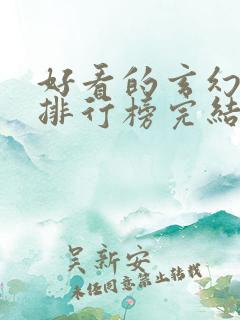 好看的玄幻
排行榜完结
吴新安
未经同意禁止转载